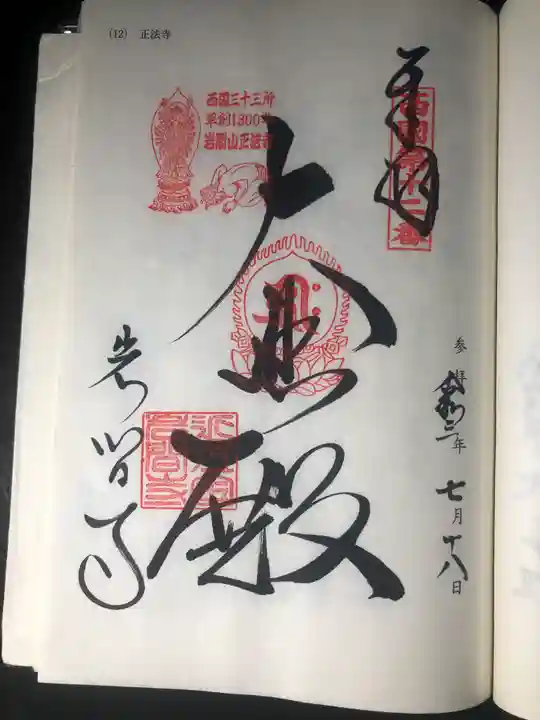 (12) 正法寺
奉拝
西国第十二番
西国三十三所
草創1300年
岩間山正法寺
大悲殿
参拝 令和三年 七月十八日
岩間寺